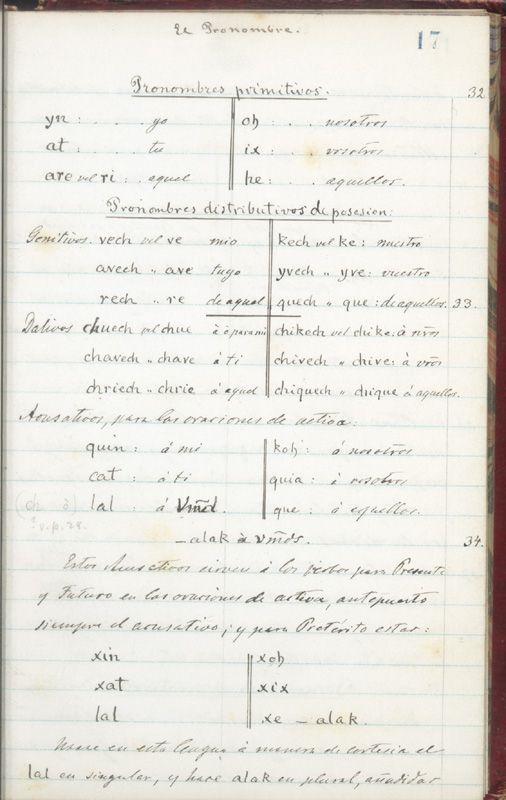 El Pronombre.
17
Pronombres primitivos. 32
yn : . . . yo oh : . . nosotros
at : . . . tu ix : . . vosotros
are vel ri : . aquel he : . . aquellos.
Pronombres distributivos de posesion:
Genitivos. vech vel ve mio kech vel ke : nuestro
avech " ave tuyo yvech " yve : vuestro
rech " re de aquel quech " que : de aquellos. 33.
Dativos chuech vel chue à ò para mi chikech vel chike : à nr̃os
chavech " chave á ti chivech " chive : à vr̃os
chriech " chrie á aquel chiquech " chique á aquellos.
Acusativos, para las oraciones de activa:
quin : á mi koh : á nosotros
cat : á ti quia : á vosotros
(ch ò) lal : á Vm̃d. que : á aquellos.
? v. p. 28.
— alak à Vm̃ds. 34.
Estos Acusativos sirven á los verbos para Presente
y Futuro en las oraciones de activa, antepuesto
siempre el acusativo; y para Pretérito estar:
xin xoh
xat xix
lal xe — alak.
en esta lengua à manera de cortesia el
lal en singular, y hace alak en plural,